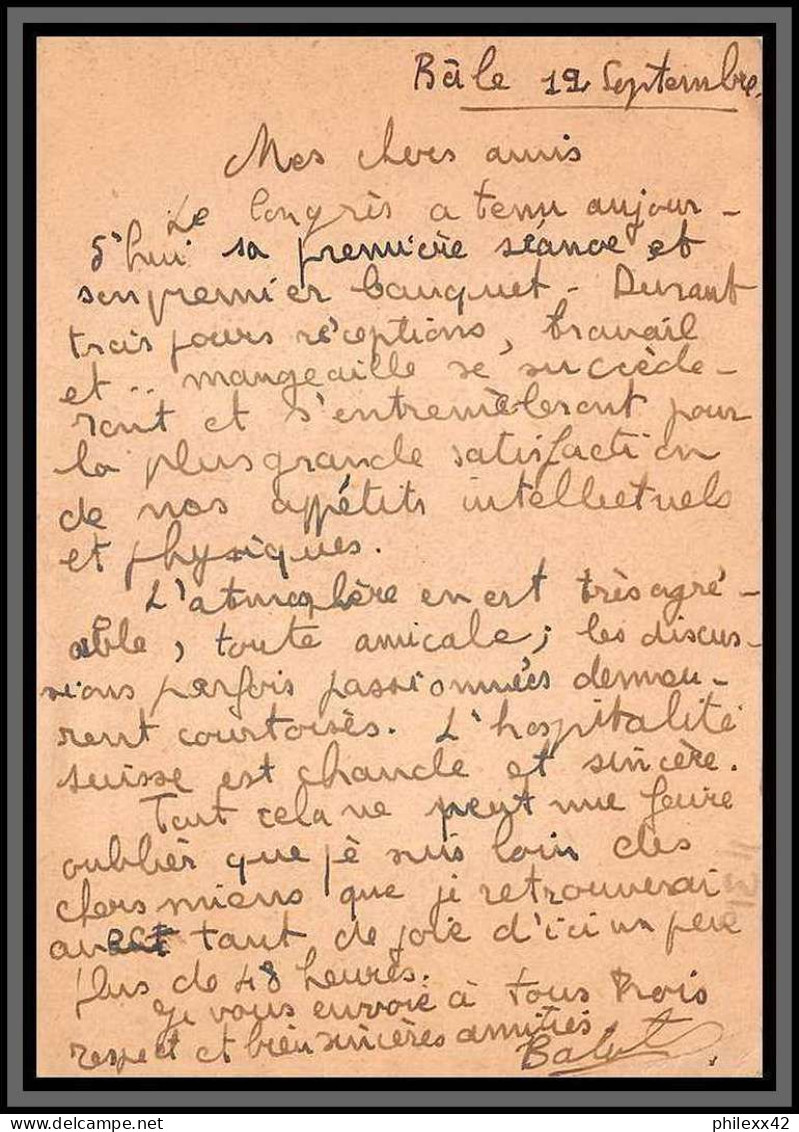 Bâle 12 Septembre.
Mes chers amis
Le Congrès a tenu aujour-
d'hui sa première séance et
son premier banquet - Durant
trois jours réceptions, travail
et .. mangeaille se succède-
ront et s'entremêleront pour
la plus grande satisfaction
de nos appétits intellectuels
et physiques.
L'atmosphère en est très agré-
able, toute amicale; les discus-
sions parfois passionnées demeu-
rent courtoises. L'hospitalité
suisse est chaude et sincère.
Tout cela ne peut me faire
oublier que je suis loin des
chers miens que je retrouverai
avec tant de joie d'ici un peu
plus de 48 heures.
Je vous envoie à tous trois
respect et bien sincères amitiés
philexx42
delcampe.net